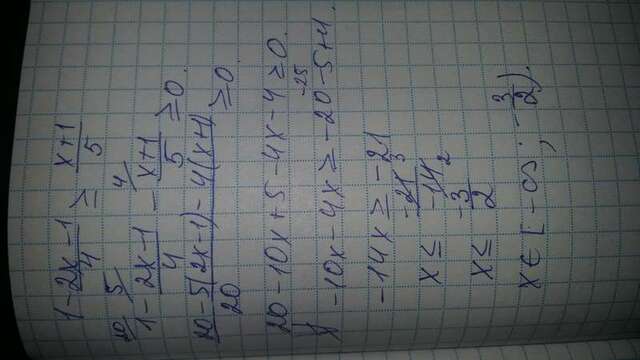 1 - (2x - 1)/4 ≥ (x+1)/5
20/ 5/ 4/
1 - (2x-1)/4 - (x+1)/5 ≥ 0.
(20 - 5(2x-1) - 4(x+1))/20 ≥ 0.
20 - 10x + 5 - 4x - 4 ≥ 0.
-25
-10x - 4x ≥ -20 - 5 + 4.
-14x ≥ -21
x ≤ -21 3/-14 2
x ≤ -3/2
x ∈ [-∞; -3/2).